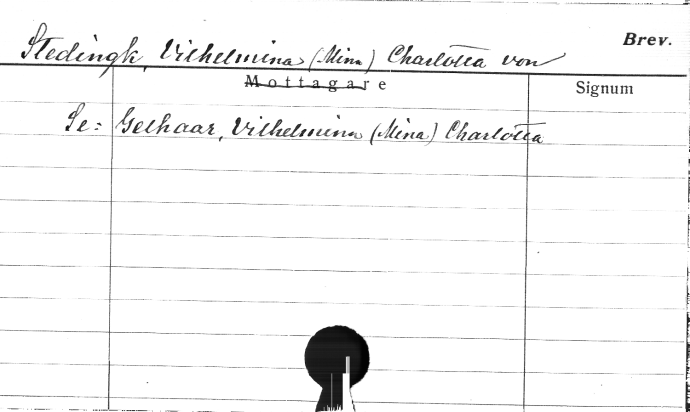 Brev.
Stedingk, Vilhelmina (Mina) Charlotta von
Mottagare Signum
Se: Gelhaar, Vilhelmina (Mina) Charlotta